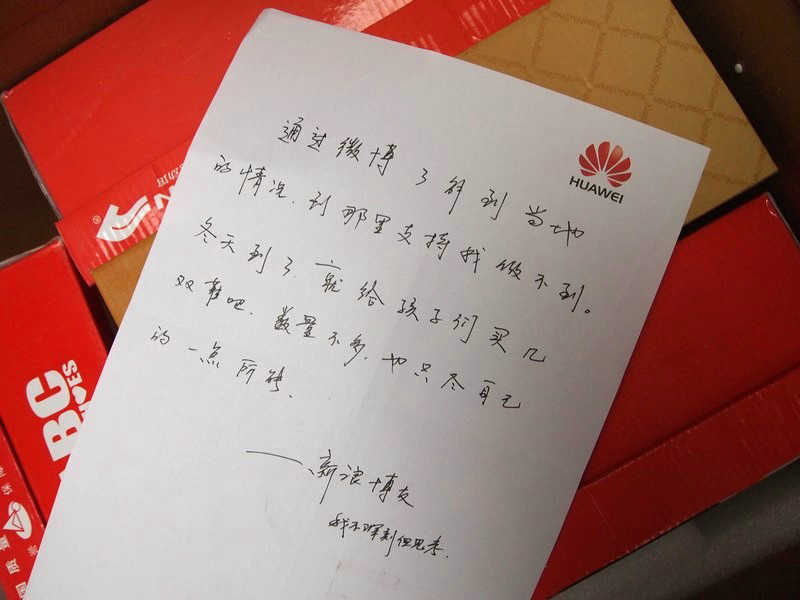 HUAWEI
通过微博了解到当地
的情况.到那里支持我做不到。
冬天到了.就给孩子们买几
双鞋吧.数量不多.也只尽自己
的一点所能.
——新浪博友
我不深刻但思考.
ABC